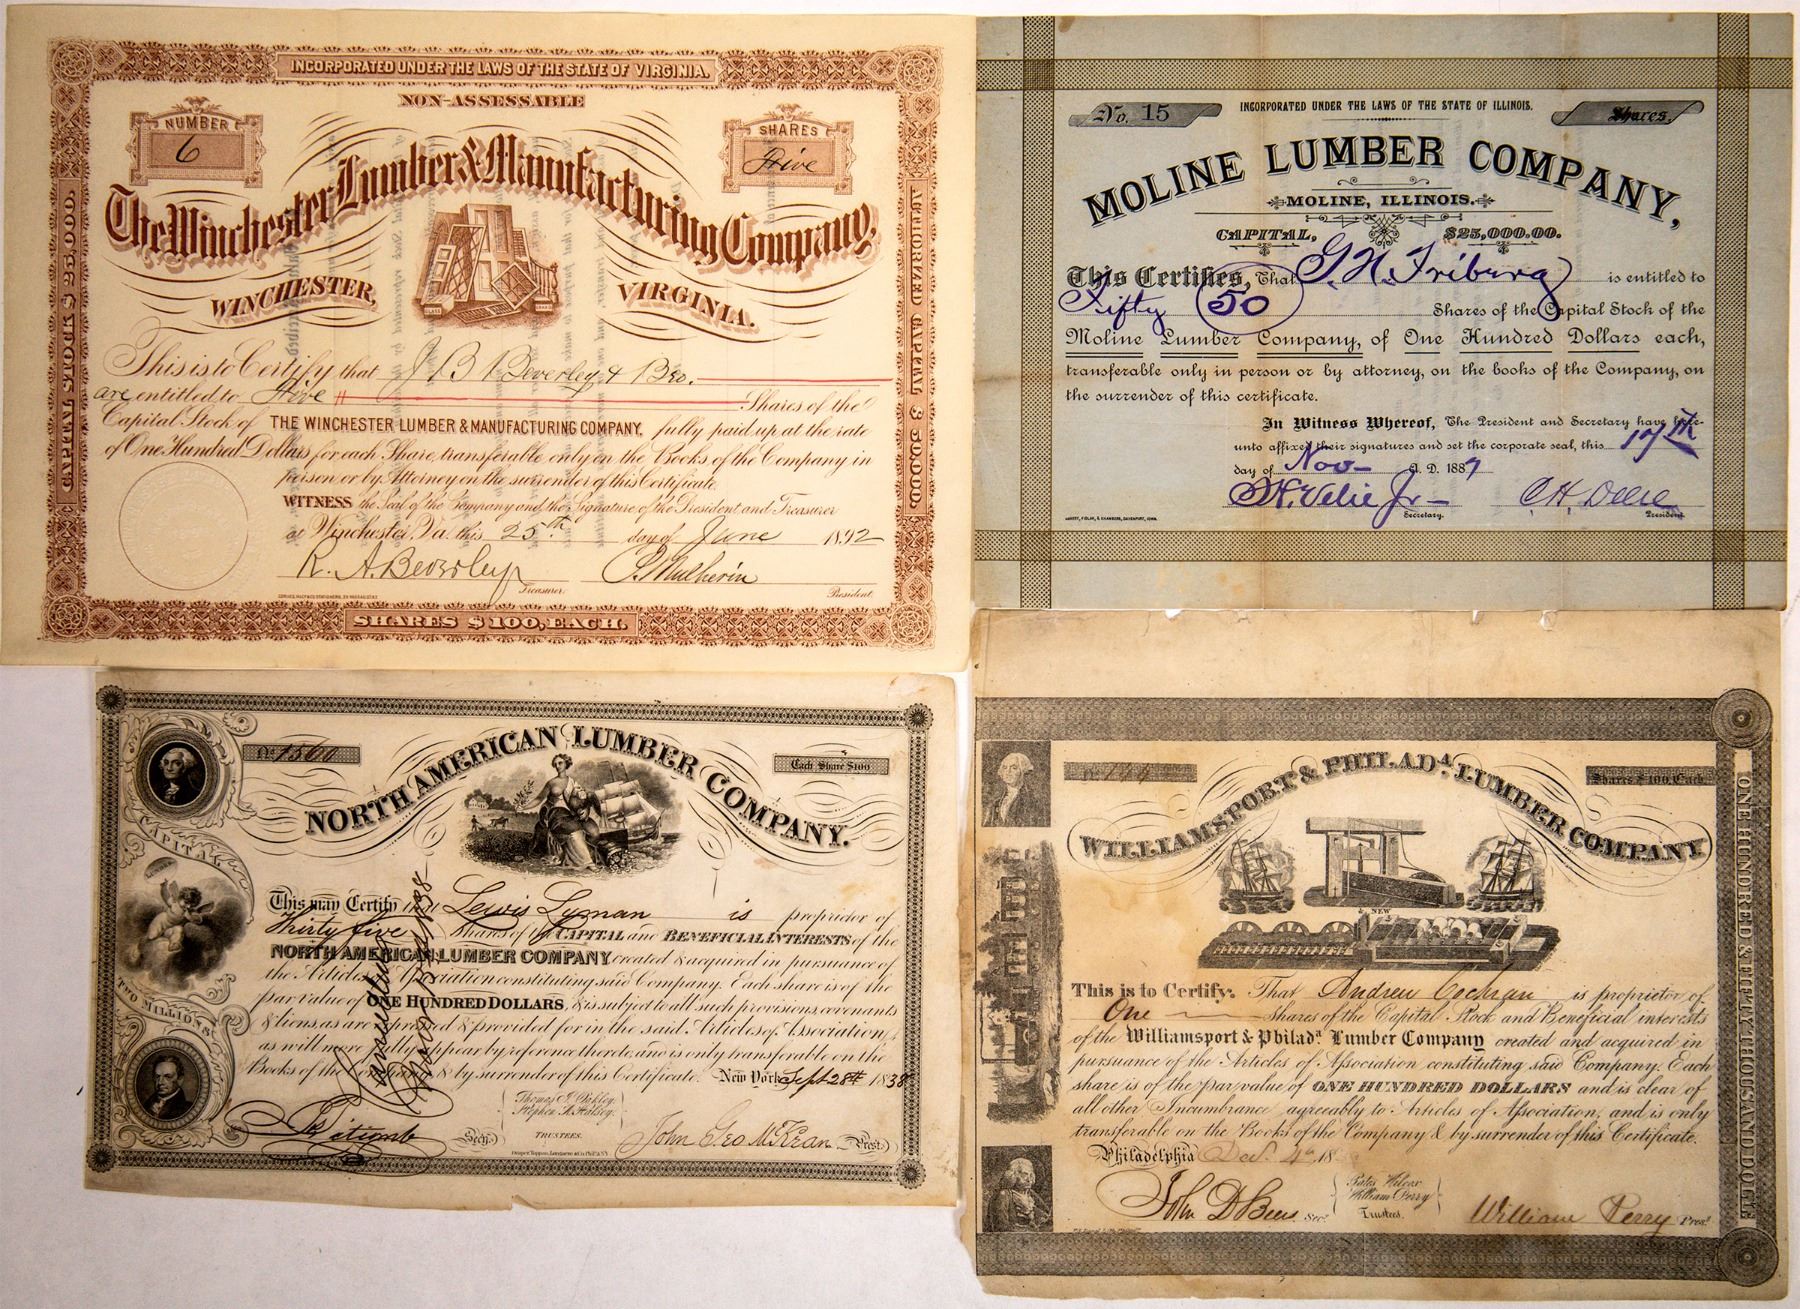 INCORPORATED UNDER THE LAWS OF THE STATE OF VIRGINIA.
NON-ASSESSABLE
NUMBER
6
SHARES
Five
The Winchester Lumber & Manufacturing Company,
WINCHESTER, VIRGINIA.
CAPITAL STOCK $ 25,000.
AUTHORIZED CAPITAL $ 50,000.
This is to Certify that J. B. Beverley & Bro.
are entitled to Five " Shares of the
Capital Stock of THE WINCHESTER LUMBER & MANUFACTURING COMPANY, fully paid up at the rate
of One Hundred Dollars for each Share, transferable only on the Books of the Company in
person or by Attorney on the surrender of this Certificate.
WITNESS the Seal of the Company and the Signature of the President and Treasurer
at Winchester, Va. this 25th day of June 1892
R. A. Beverley P. Mulherin
Treasurer. President.
SHARES $100, EACH.
No. 15
INCORPORATED UNDER THE LAWS OF THE STATE OF ILLINOIS.
Shares.
MOLINE LUMBER COMPANY,
MOLINE, ILLINOIS.
CAPITAL, $25,000.00.
This Certifies, That G. N. Friburg is entitled to
Fifty 50 Shares of the Capital Stock of the
Moline Lumber Company, of One Hundred Dollars each,
transferable only in person or by attorney, on the books of the Company, on
the surrender of this certificate.
In Witness Whereof, The President and Secretary have here-
unto affixed their signatures and set the corporate seal, this 17th
day of Nov A. D. 1887
S. H. Velie Jr C. H. Deere
Secretary. President.
No. 1560
Each Share $100
NORTH AMERICAN LUMBER COMPANY.
CAPITAL
TWO MILLIONS
This may Certify that Lewis Lyman is proprietor of
Thirty five Shares of the CAPITAL and BENEFICIAL INTERESTS of the
NORTH AMERICAN LUMBER COMPANY created & acquired in pursuance of
the Articles of Association constituting said Company. Each share is of the
par value of ONE HUNDRED DOLLARS, & is subject to all such provisions covenants
& liens as are expressed & provided for in the said Articles of Association,
as will more fully appear by reference thereto and is only transferable on the
Books of the Company & by surrender of this Certificate. New York Sept 28th 1838
Cancelled
Secy.
TRUSTEES.
John Geo. McKean Prest.
Shares $100, Each
WILLIAMSPORT & PHILADA. LUMBER COMPANY
NEW
ONE HUNDRED & FIFTY THOUSAND DOLLS
This is to Certify: That Andrew Cochran is proprietor of
One Shares of the Capital Stock and Beneficial interests
of the Williamsport & Philada. Lumber Company created and acquired in
pursuance of the Articles of Association constituting said Company. Each
share is of the par value of ONE HUNDRED DOLLARS and is clear of
all other Incumbrance agreeably to Articles of Association, and is only
transferable on the Books of the Company & by surrender of this Certificate.
Philadelphia Dec. 4th 18
William Perry
Trustees.
John D Bees Secy. William Perry Prest.